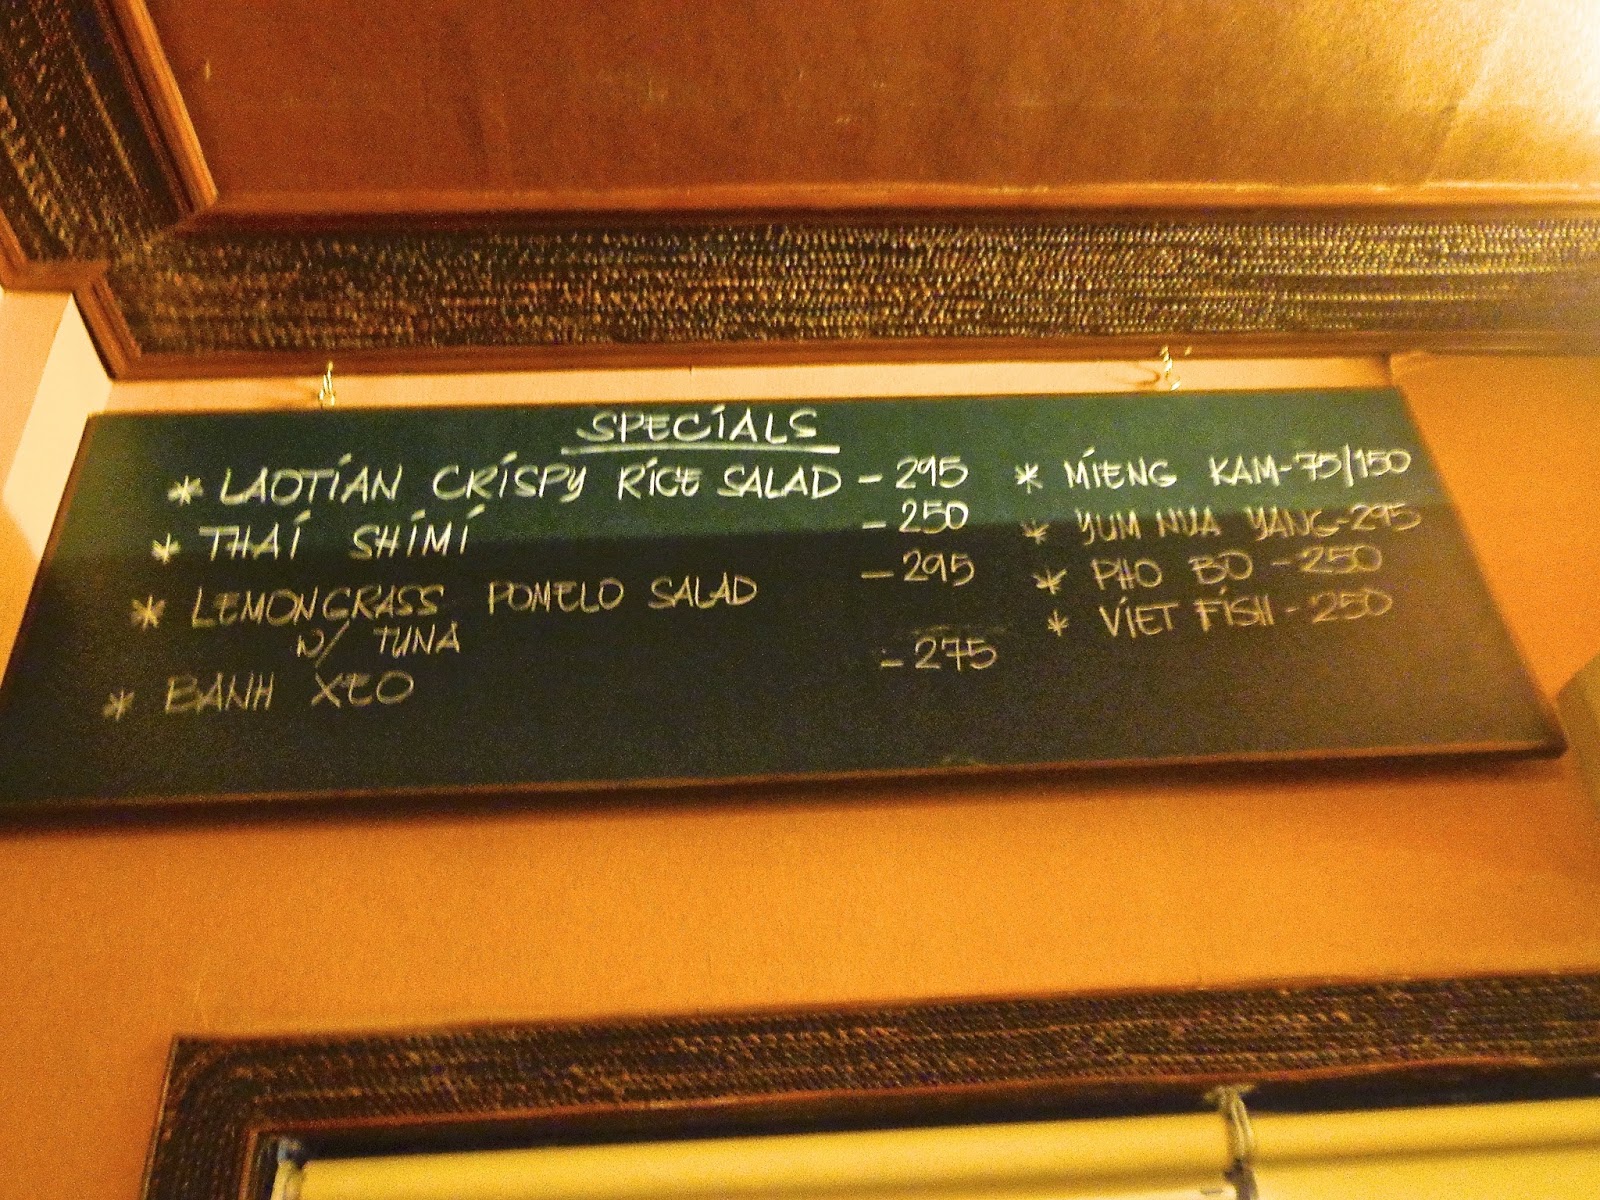 SPECIALS
* LAOTIAN CRISPY RICE SALAD - 295
* THAI SHIMI - 250
* LEMONGRASS POMELO SALAD - 295
W/ TUNA
* BANH XEO - 275
* MIENG KAM-75/150
* YUM NUA YANG-295
* PHO BO - 250
* VIET FISH - 250